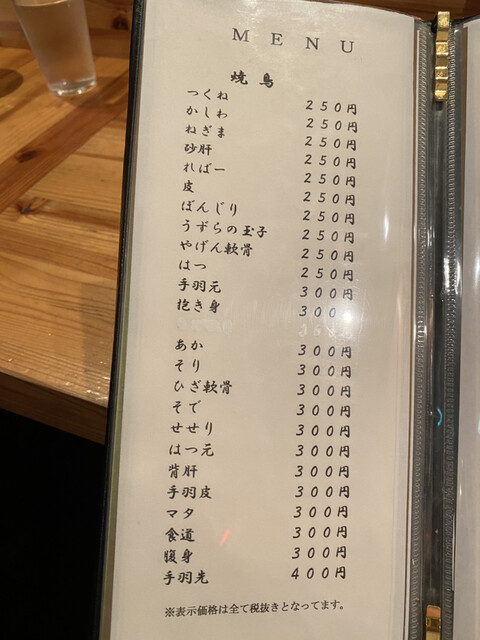 MENU
焼鳥
つくね 250円
かしわ 250円
ねぎま 250円
砂肝 250円
ればー 250円
皮 250円
ぼんじり 250円
うずらの玉子 250円
やげん軟骨 250円
はつ 250円
手羽元 300円
抱き身 300
あか 300円
そり 300円
ひざ軟骨 300円
そで 300円
せせり 300円
はつ元 300円
背肝 300円
手羽皮 300円
マタ 300円
食道 300円
腹身 300円
手羽先 400円
※表示価格は全て税抜きとなってます。